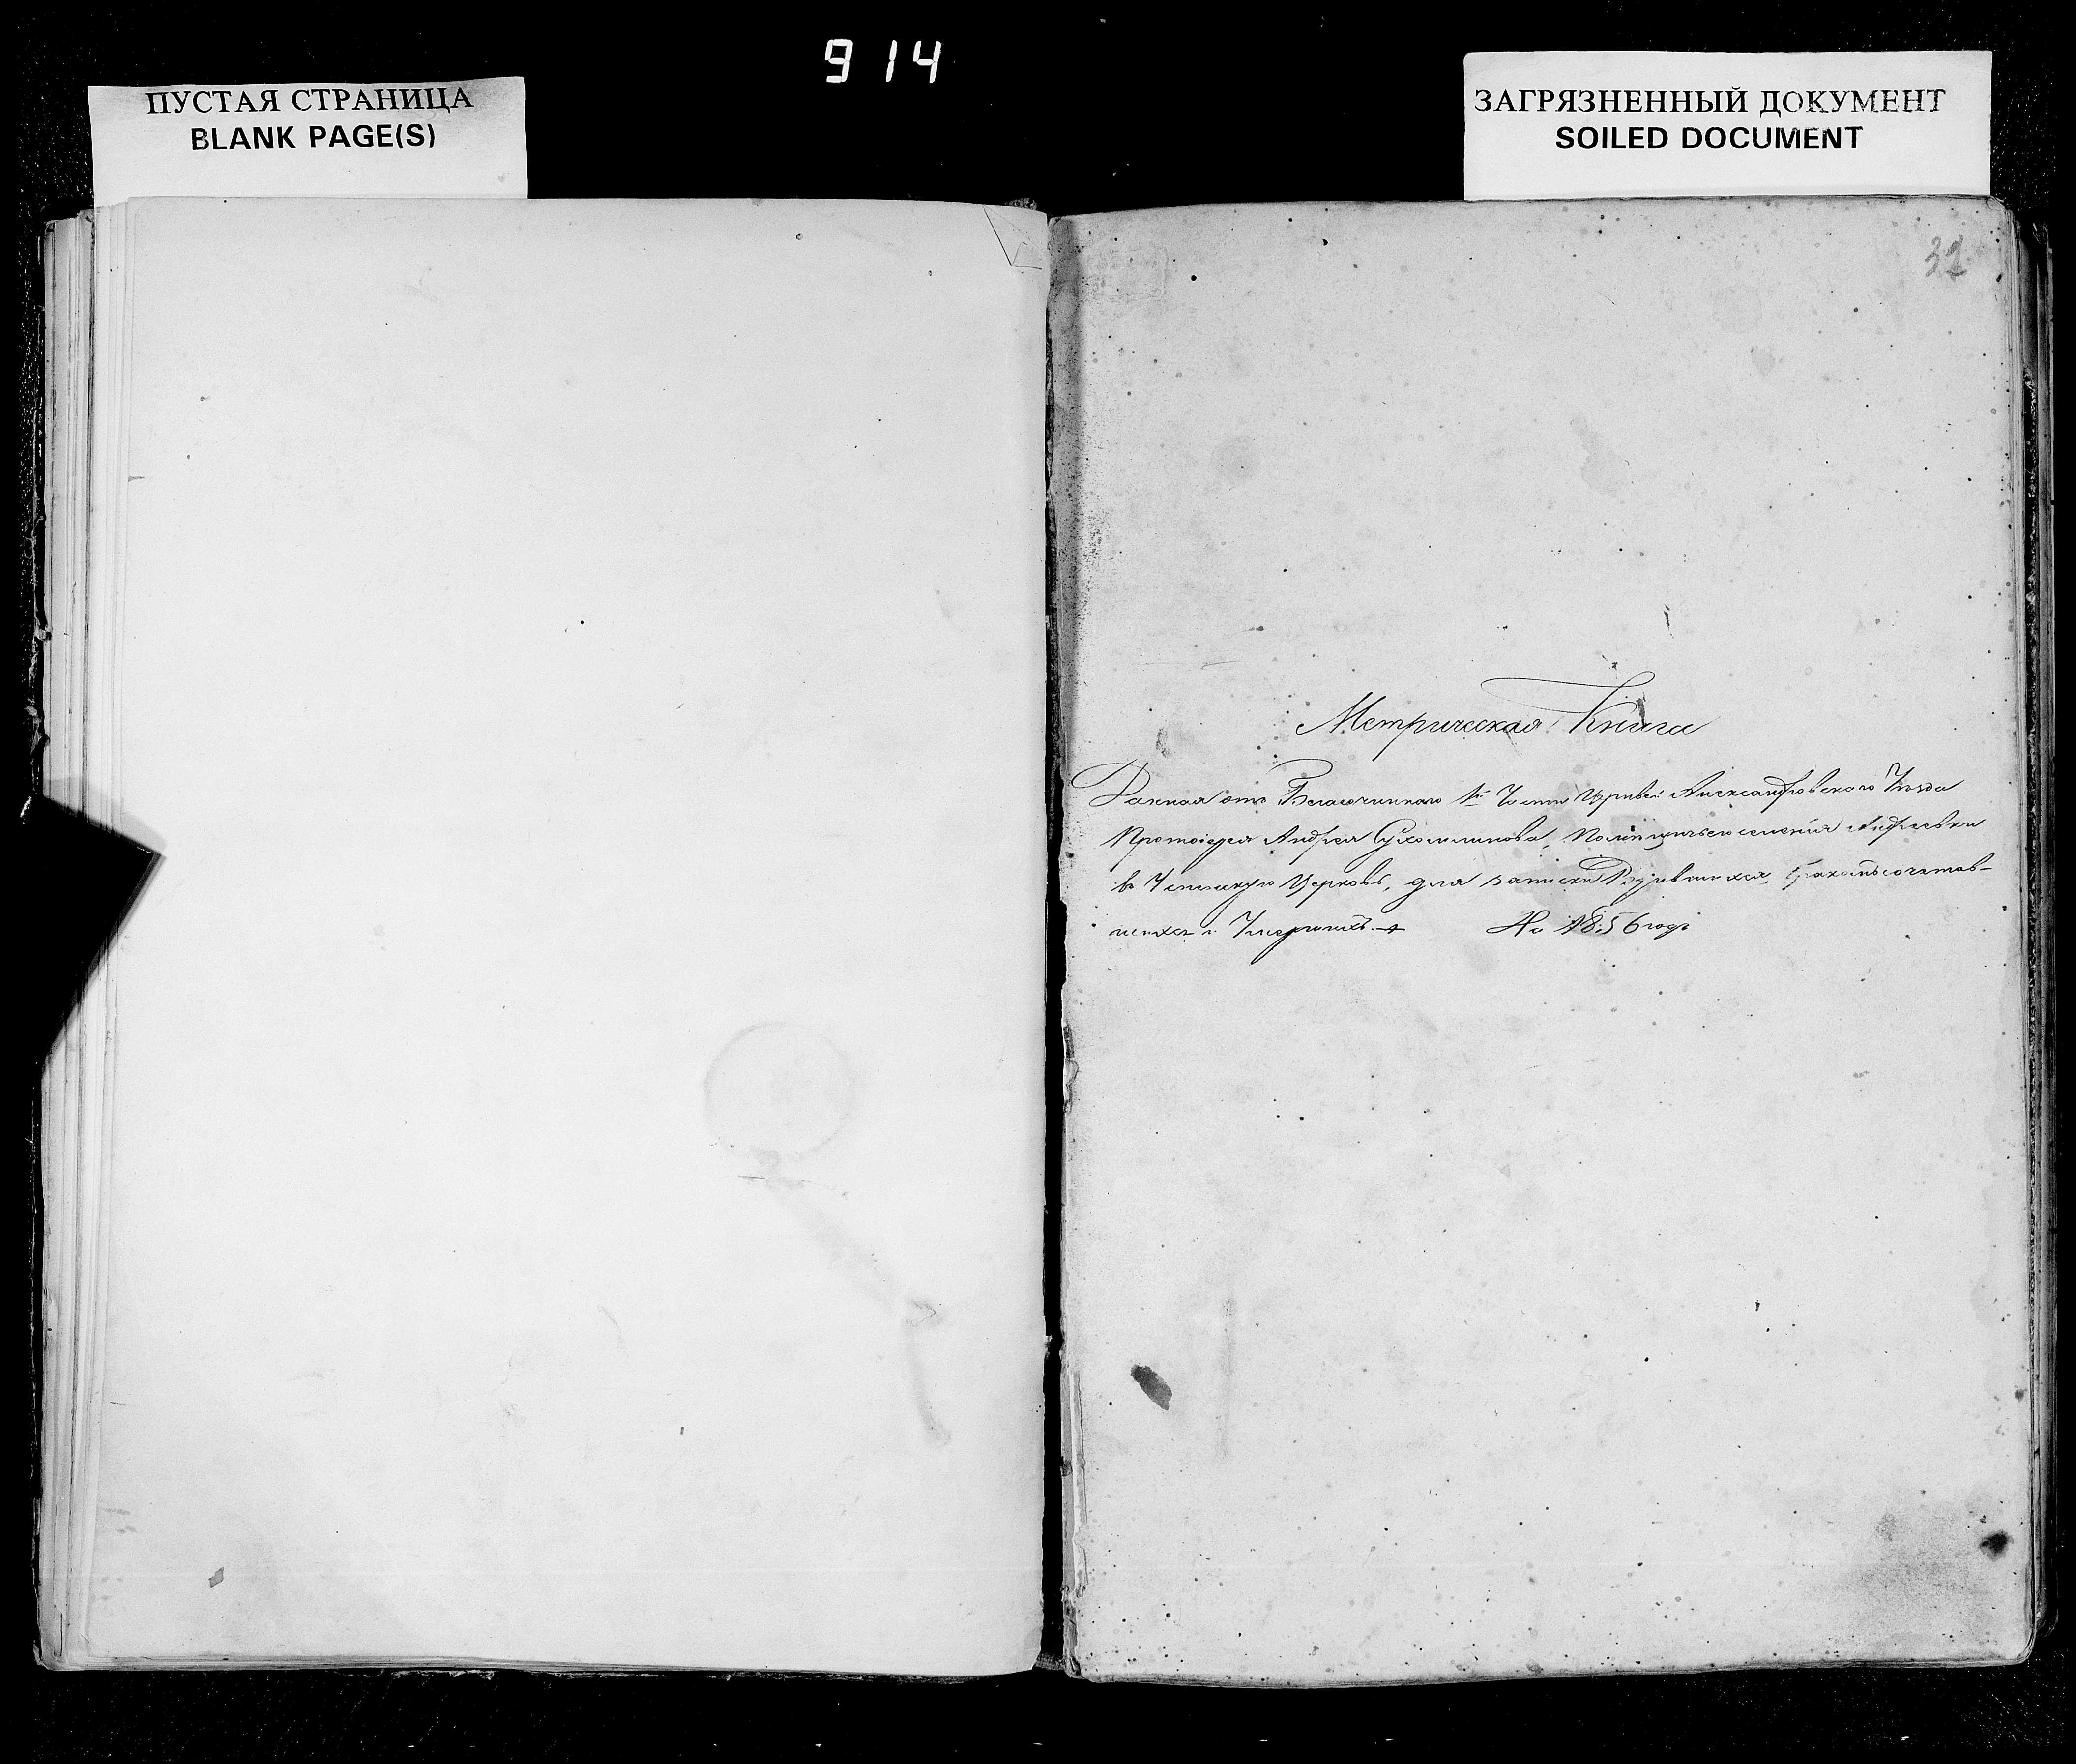 914
ПУСТАЯ СТРАНИЦА
BLANK PAGE(S)
ЗАГРЯЗНЕННЫЙ ДОКУМЕНТ
SOILED DOCUMENT
32
Метрическая Книга
Данная отъ Благочиннаго 1й Части Церквей Александровского Уезда
Протоіерея Андрея Сухомлинова, селенія Андреевки
в Церковь, для записки Родившихся, Бракомъ сочетав-
шихся и Умершихъ. На 1856 годъ